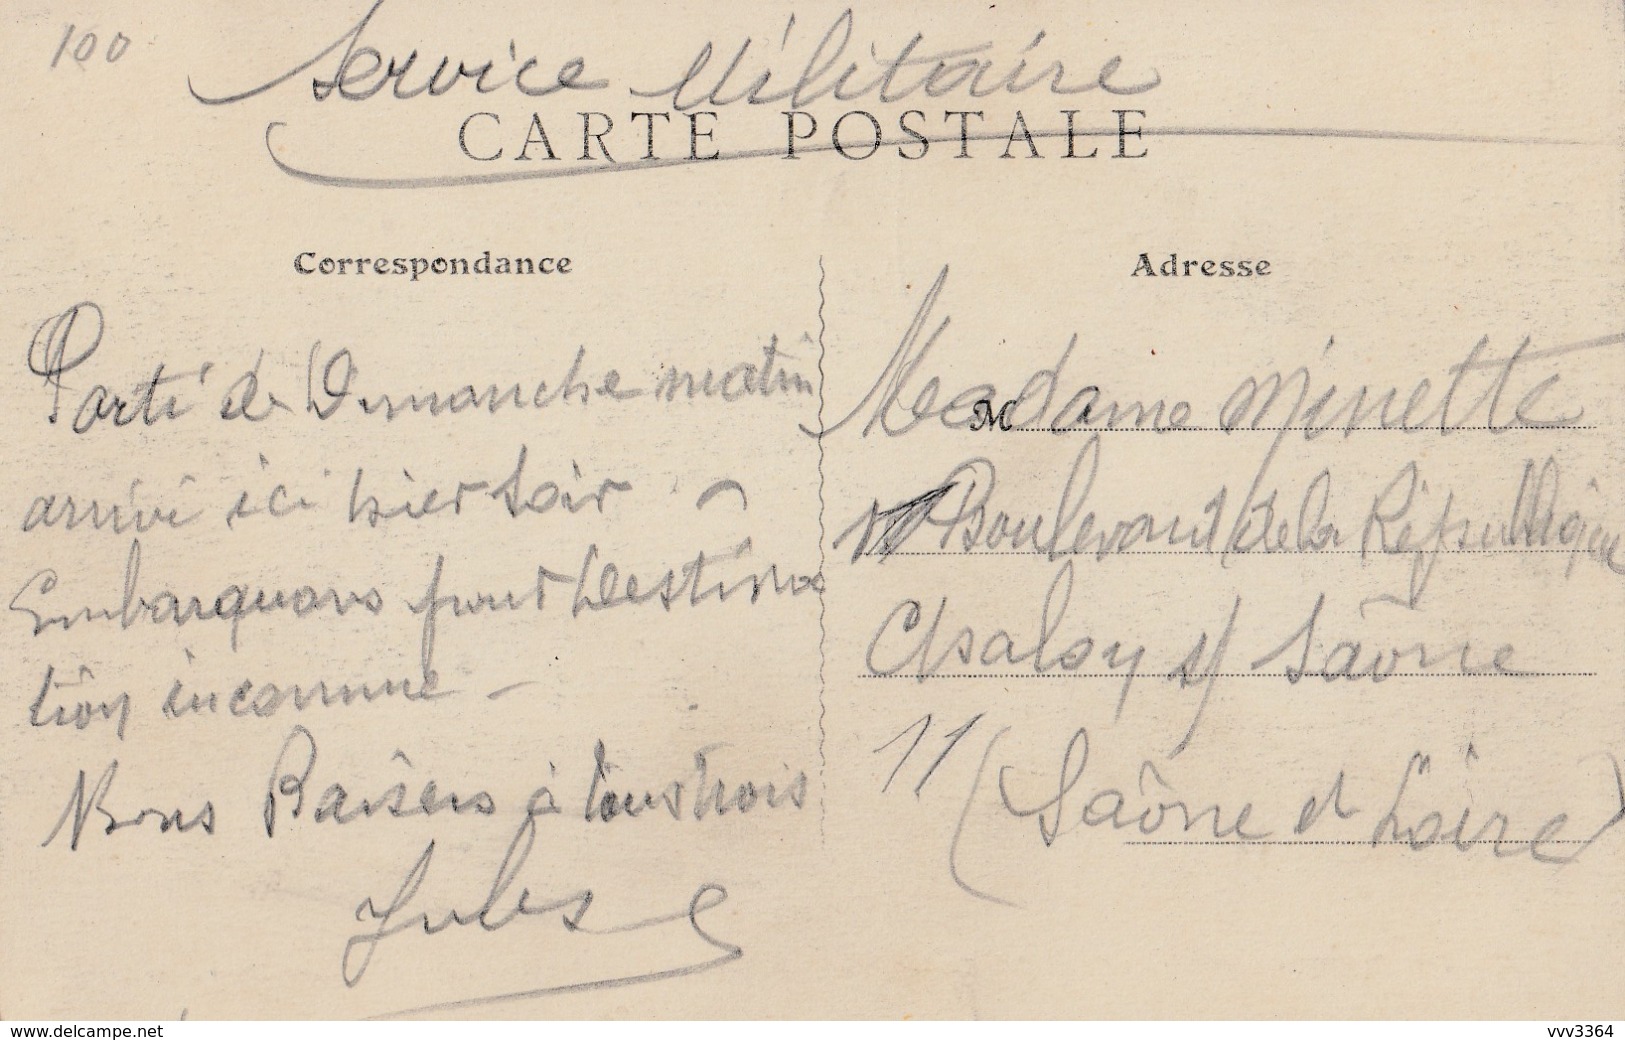 100
Service Militaire
CARTE POSTALE
Correspondance
Parti de Dimanche matin
arrivé ici hier soir
Embarquons pour destina
tion inconnue -
Bons Baisers à tous trois
Jules
Adresse
M
Madame Minette
Boulevard de la République
Chalon s/ Saône
11
(Saône et Loire)
www.delcampe.net
vvv3364